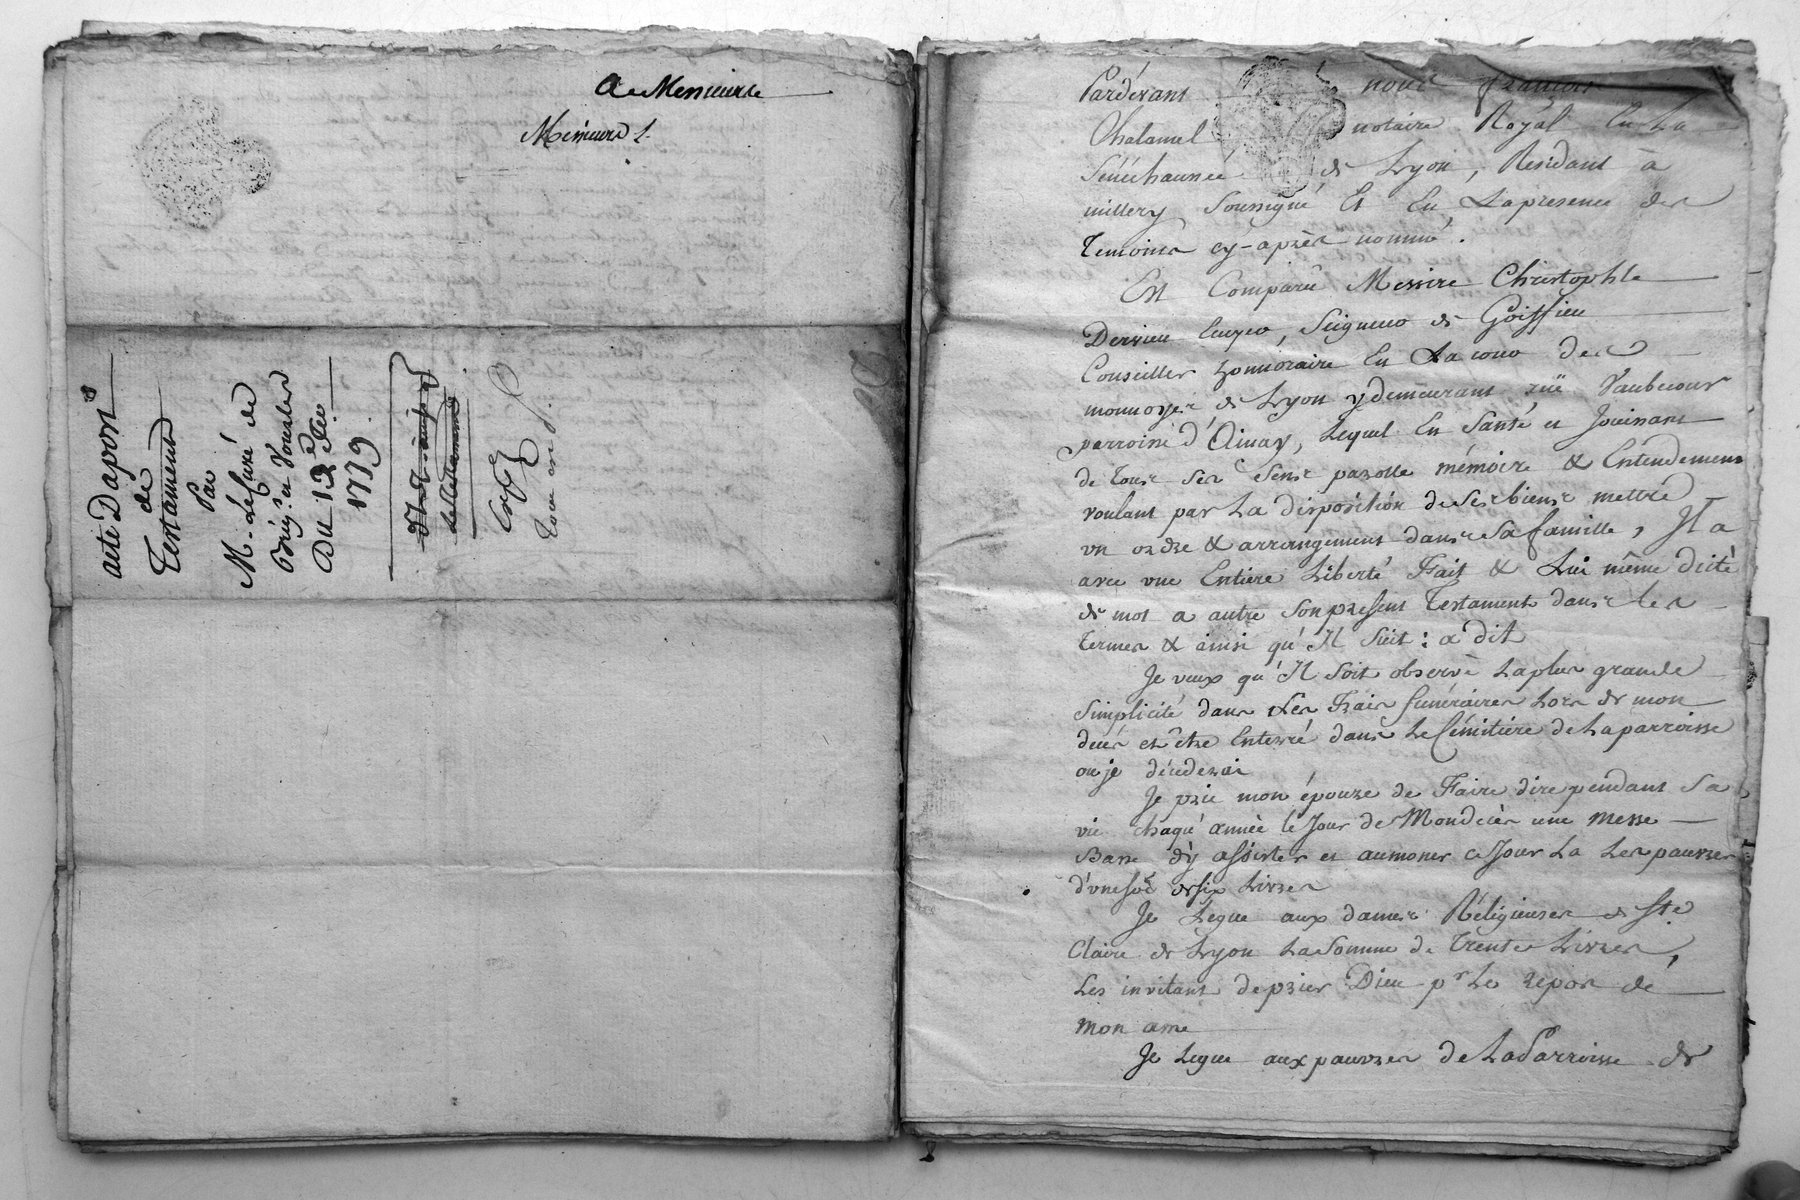 a Messieurs
Messieurs l
acte Daport
de
Testament
Par
M. le Curé de
Brig.s et Vourles
Du 12e Fév.
1779.
Pardevant nous françois
Chalamel notaire Royal En La
Sénéchaussée de Lyon, Residant à
millery soussigné Et En Lapresence des
Temoins cy-après nommé.
Est Comparû Messire Christophle
Dervieu Ecuyer, Seigneur de Goiffieu
Conseiller honnoraire En La cour des
monnoyes de Lyon y demeurant rüe Vaubecour
parroisse d'Ainay, Lequel En Santé et Jouissant
de tous ses sens parolle mémoire & Entendement
voulant par La disposition de Ses biens mettre
un ordre & arrangement dans Sa famille, Il a
avec une Entiere Liberté Fait & Lui même dicté
de mot a autre Son present Testament dans les
termes & ainsi qu'Il Suit: a dit
Je veux qu'Il Soit observé La plus grande
Simplicité dans Les Frais funéraires Lors de mon
décés et être Enterré dans Le Cémitiére de La parroisse
ou je décederai
Je prie mon épouse de Faire dire pendant Sa
vie chaque année le Jour de Mon décès une messe
Basse d'y assister et aumoner ce Jour La Les pauvres
d'une so.e de six Livres
Je Légue aux dames Réligieuses de Ste
Claire de Lyon La Somme de Trente Livres,
Les invitant de prier Dieu p.r Le repos de
mon ame
Je Legue aux pauvres de La Parroisse de